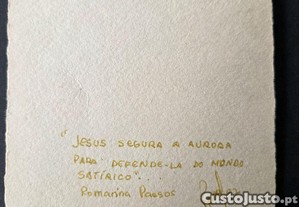 "JESUS SEGURA A AURORA
PARA DEFENDE-LA DO MUNDO
SATÍRICO"...
Romanina Passos
CustoJusto.pt